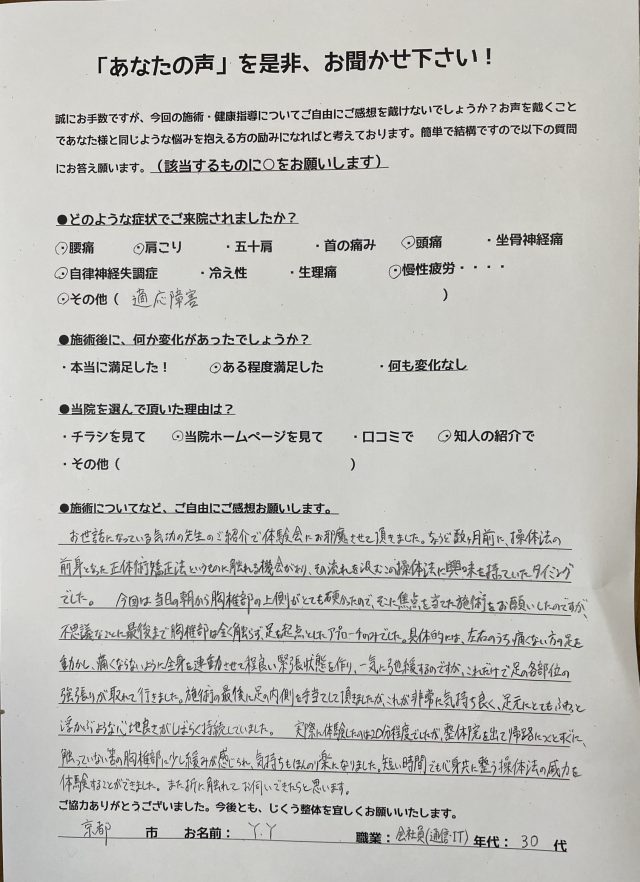 「あなたの声」を是非、お聞かせ下さい！
誠にお手数ですが、今回の施術・健康指導についてご自由にご感想を戴けないでしょうか？お声を戴くこと
であなた様と同じような悩みを抱える方の励みになればと考えております。簡単で結構ですので以下の質問
にお答え願います。（該当するものに○をお願いします）
●どのような症状でご来院されましたか？
・腰痛 ・肩こり ・五十肩 ・首の痛み ・頭痛 ・坐骨神経痛
・自律神経失調症 ・冷え性 ・生理痛 ・慢性疲労・・・・
・その他（ 適応障害 ）
●施術後に、何か変化があったでしょうか？
・本当に満足した！ ・ある程度満足した ・何も変化なし
●当院を選んで頂いた理由は？
・チラシを見て ・当院ホームページを見て ・口コミで ・知人の紹介で
・その他（ ）
●施術についてなど、ご自由にご感想お願いします。
お世話になっている気功の先生のご紹介で体験会にお邪魔させて頂きました。ちょうど数ヶ月前に、操体法の
前身となった正体術矯正法というものに触れる機会があり、その流れを汲むこの操体法に興味を持っていたタイミング
でした。 今回は当日の朝から胸椎部の上側がとても硬かったので、そこに焦点を当てた施術をお願いしたのですが、
不思議なことに最後まで胸椎部は全く触らず、足を起点としたアプローチのみでした。具体的には、左右のうち、痛くない方の足を
動かし、痛くならないように全身を連動させて程良い緊張状態を作り、一気に弛緩するのですが、これだけで足の各部位の
強張りが取れて行きました。施術の最後に足の内側を手当てして頂きましたが、これが非常に気持ち良く、足元にとてもふわっと
浮かぶような心地良さがしばらく持続していました。 実際に体験したのは20分程度でしたが、整体院を出て帰路につくとすぐに、
触っていない筈の胸椎部に少し緩みが感じられ、気持ちもほんのり楽になりました。短い時間でも心身共に整う操体法の威力を
体験することができました。また折に触れてお伺いできたらと思います。
ご協力ありがとうございました。今後とも、じくう整体を宜しくお願いいたします。
京都 市 お名前： Y.Y 職業：会社員(通信・IT) 年代：30 代